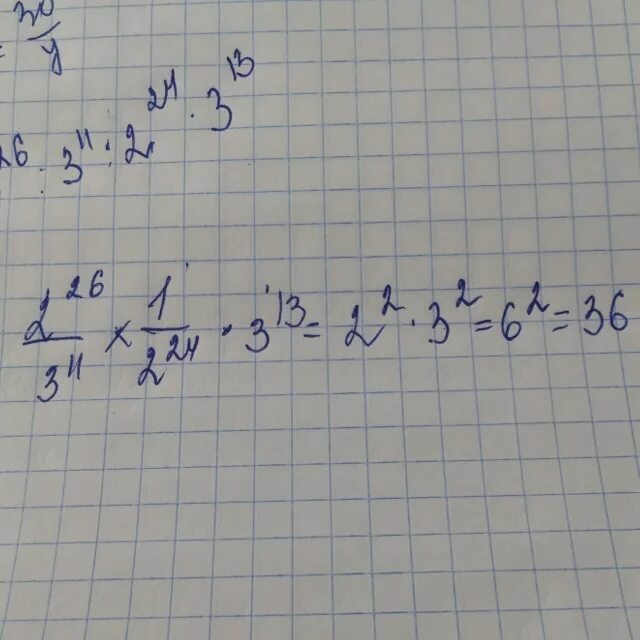 = 30/y
26 : 3^11 : 2^24 · 3^13
2^26/3^11 × 1/2^24 · 3^13 = 2^2 · 3^2 = 6^2 = 36